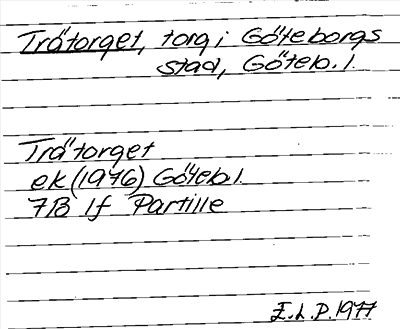 Trätorget, torg i Göteborgs
stad, Göteb. l.
Trätorget
ek (1976) Göteb l.
7B 1f Partille
E.L.P. 1977